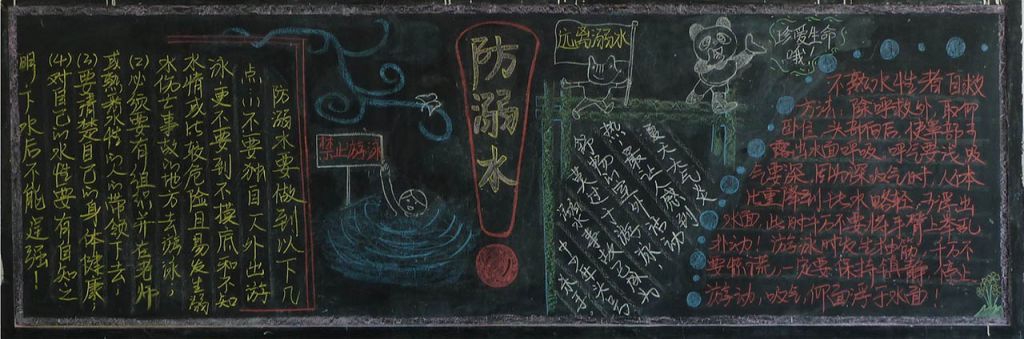 防溺水要做到以下几
点:(1)不要独自一人外出游
泳,更不要到不摸底和不知
水情或比较危险且易发生溺
水伤亡事故的地方去游泳;
(2)必须要有组织并在老师
或熟悉水性的人的带领下去;
(3)要清楚自己的身体健康,
(4)对自己的水性要有自知之
明,下水后不能逞强!
禁止游泳
防溺水
远离溺水
珍爱生命
哦!
夏天天气炎
不熟水性者自救
方法:除呼救外,取仰
卧位,头部向后,使鼻部可
露出水面呼吸。呼气要浅,吸
气要深。因为深吸气时,人体
比重降到比水略轻,可浮出
水面,此时千万不要将手臂上举乱
扑动!游泳时发生抽筋,千万不
要惊慌,一定要保持镇静,停止
游动,吸气,仰面浮于水面!